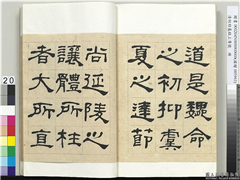 道是魏命
之初抑虞
夏之達節
尚延陵之
讓體所枉
者大所直
20